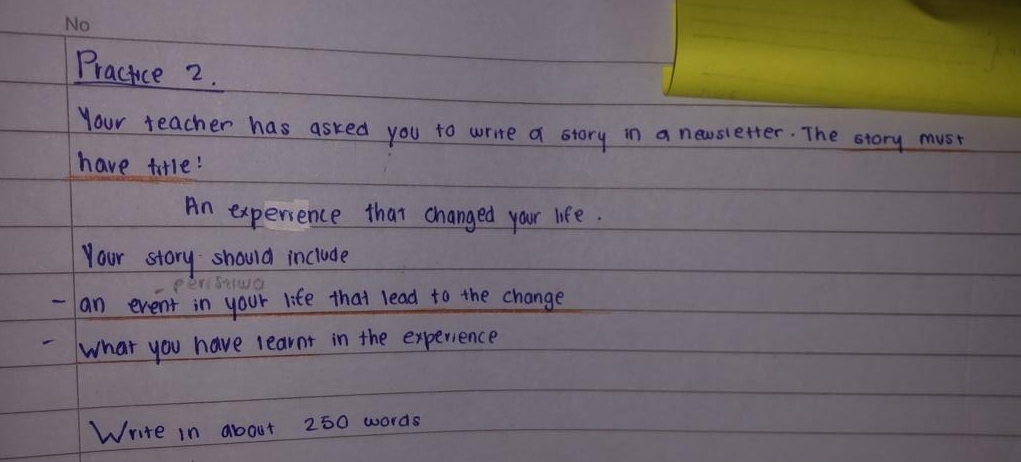 No
Practice 2.
Your teacher has asked you to write a story in a newsletter. The story must
have title!
An experience that changed your life.
Your story should include
- peristiwa
- an event in your life that lead to the change
- What you have learnt in the experience
Write in about 250 words